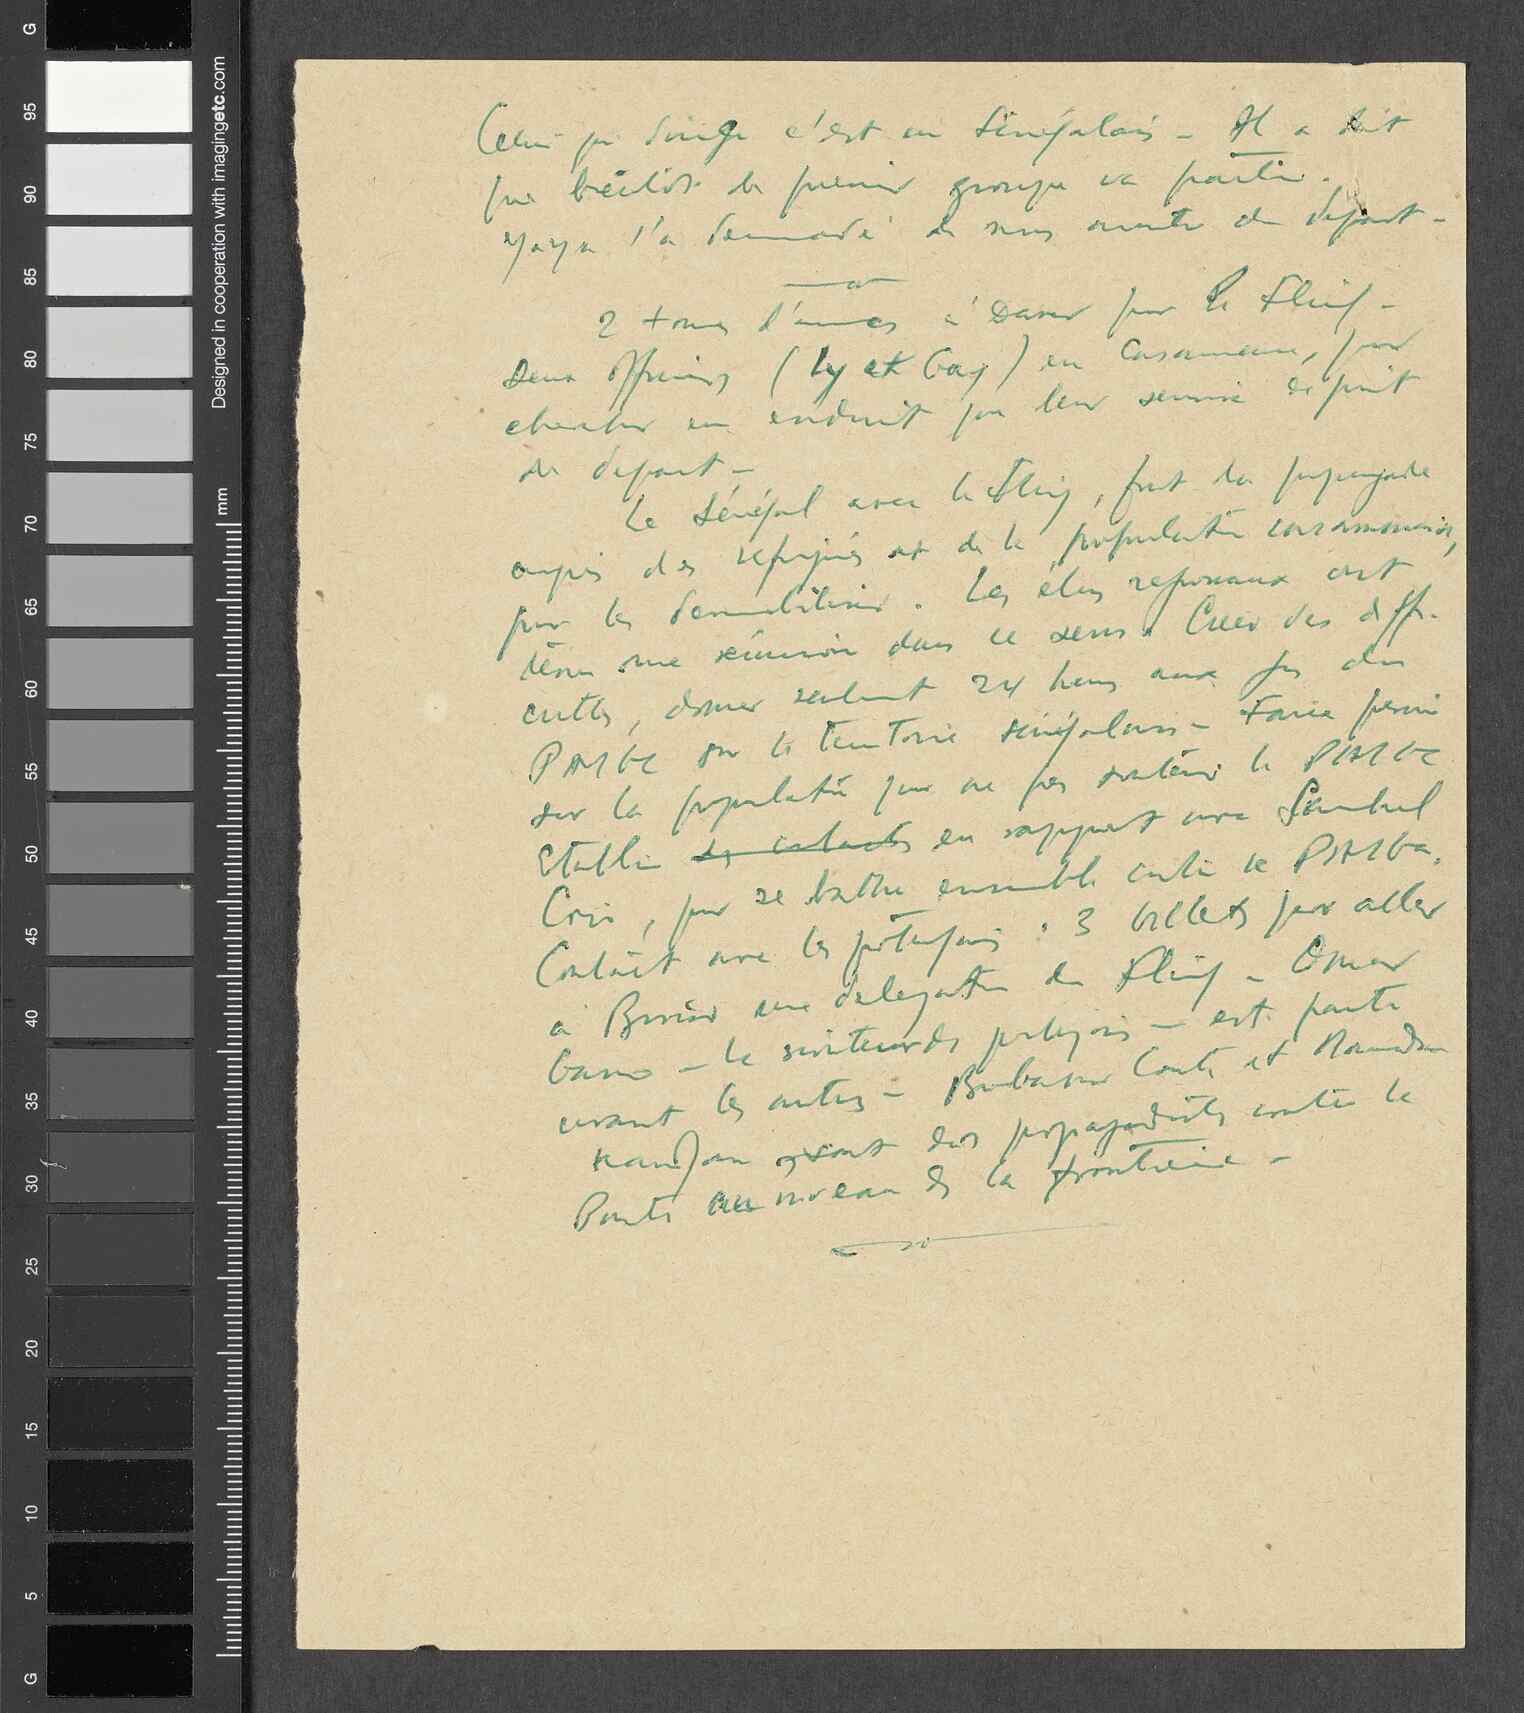 Celui qui dirige c'est un Sénégalais - Il a dit
que bientôt le premier groupe va partir.
Yaya l'a demandé de nous avertir du départ -
2 tonnes d'armes à Dakar pour le Fling -
Deux officiers (Ly et Gay) en Casamance, pour
chercher un endroit qui leur servira de point
de départ -
Le Sénégal avec le Fling, font la propagande
auprès des réfugiés et de la population casamancaise,
pour les démobiliser. Les élus régionaux ont
tenu une réunion dans ce sens. Créer des diffi-
cultés, donner seulement 24 heures aux gens du
PAIGC sur le territoire sénégalais - Faire pression
sur la population pour ne pas soutenir le PAIGC
Etablir des contacts en rapport avec Sambel
, pour se battre ensemble contre le PAIGC.
Contact avec les portugais : 3 billets pour aller
à Bissau une délégation du Fling - Omar
Gano - le serviteur des portugais - est partie
avant les autres - Boubacar Conté et Mamadou
sont des propagandistes contre le
Parti au niveau de la frontière -
G
95
90
85
80
75
70
65
60
55
50
45
40
35
30
25
20
15
10
5
G
Designed in cooperation with imagingetc.com
mm